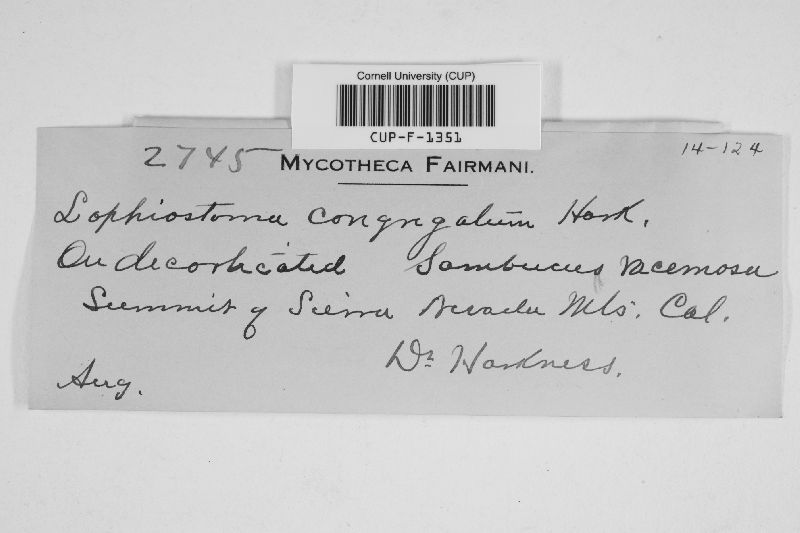 Cornell University (CUP)
CUP-F-1351
2745 MYCOTHECA FAIRMANI. 14-124
Lophiostoma congregatum Hark.
On decorticated Sambucus racemosa
Summit of Sierra Nevada Mts. Cal.
Dr. Harkness.
Aug.